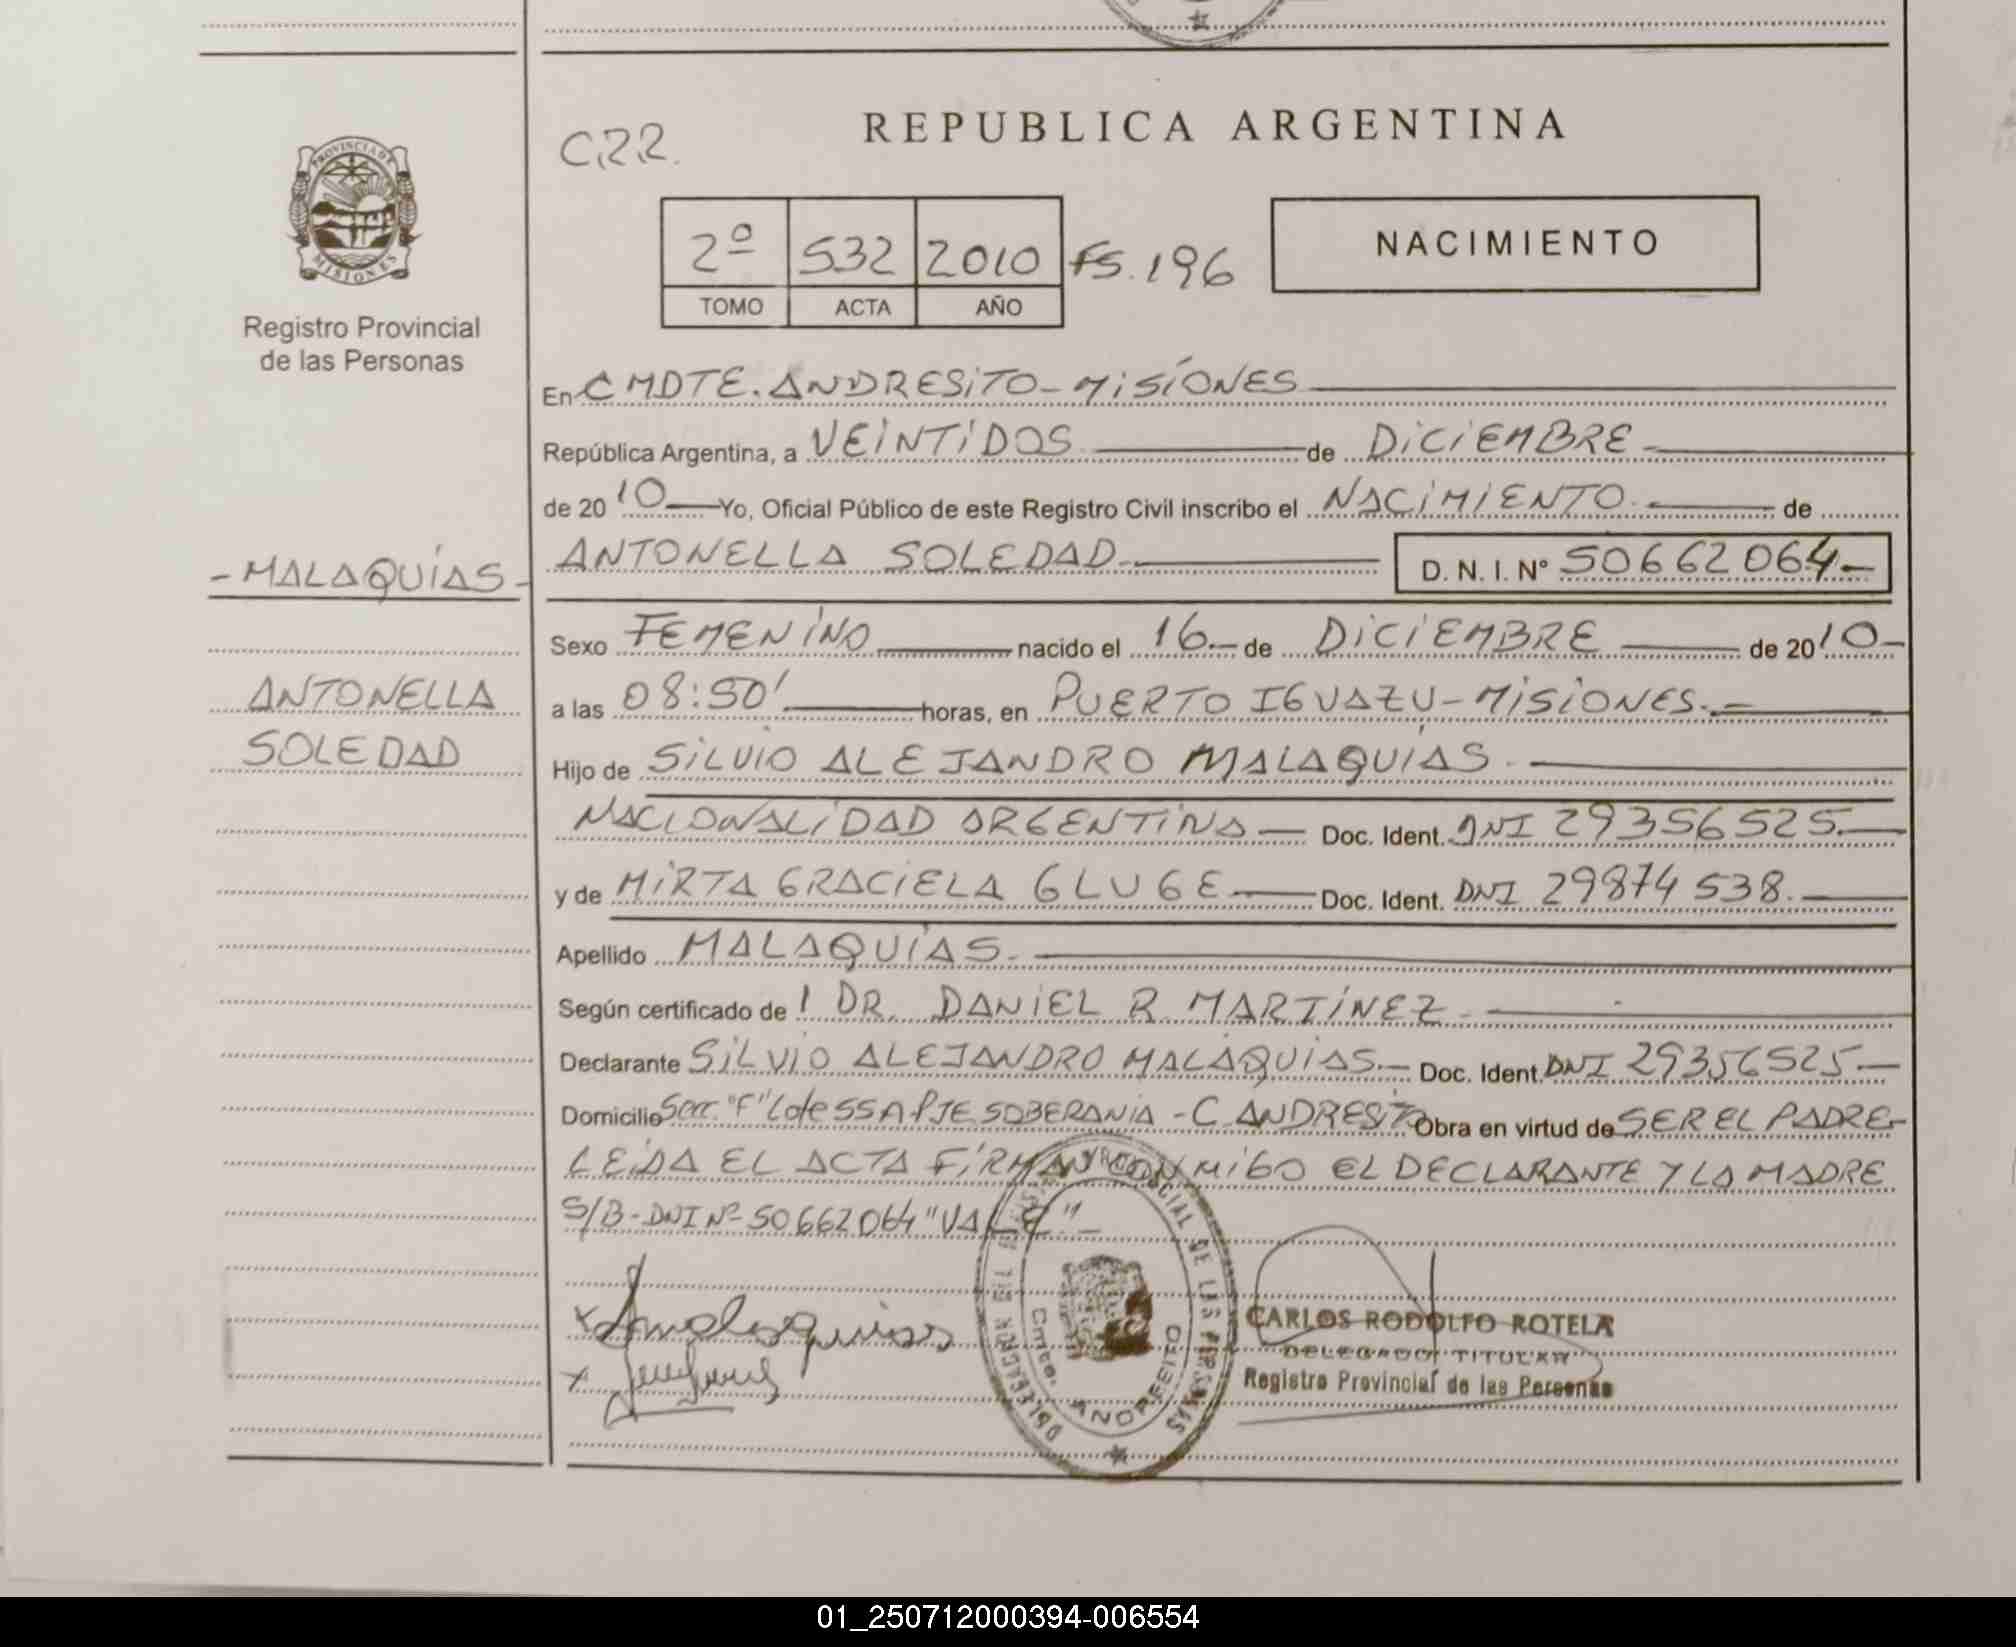 REPUBLICA ARGENTINA
C.R.R.
PROVINCIA DE
MISIONES
Registro Provincial
de las Personas
2º 532 2010 FS. 196
TOMO ACTA AÑO
NACIMIENTO
En CMDTE. ANDRESITO - MISIONES
República Argentina, a VEINTIDOS de DICIEMBRE
de 2010 Yo, Oficial Público de este Registro Civil inscribo el NACIMIENTO de
- MALAQUIAS -
ANTONELLA SOLEDAD D. N. I. Nº 50662064
Sexo FEMENINO nacido el 16 de DICIEMBRE de 2010
ANTONELLA
SOLEDAD
a las 08:50' horas, en PUERTO IGUAZU - MISIONES
Hijo de SILVIO ALEJANDRO MALAQUIAS
NACIONALIDAD ARGENTINA Doc. Ident. DNI 29356525
y de MIRTA GRACIELA GLUGE Doc. Ident. DNI 29874538.
Apellido MALAQUIAS.
Según certificado de l DR. DANIEL R. MARTINEZ
Declarante SILVIO ALEJANDRO MALAQUIAS. Doc. Ident. DNI 29356525
Domicilio "F" PJE SOBERANIA - C. ANDRESITO Obra en virtud de SER EL PADRE
LEIDA EL ACTA FIRMAN CONMIGO EL DECLARANTE Y LA MADRE
S/B - DNI Nº 50662064 "VALE"
CARLOS RODOLFO ROTELA
DELEGADO TITULAR
Registro Provincial de las Personas
01_250712000394-006554